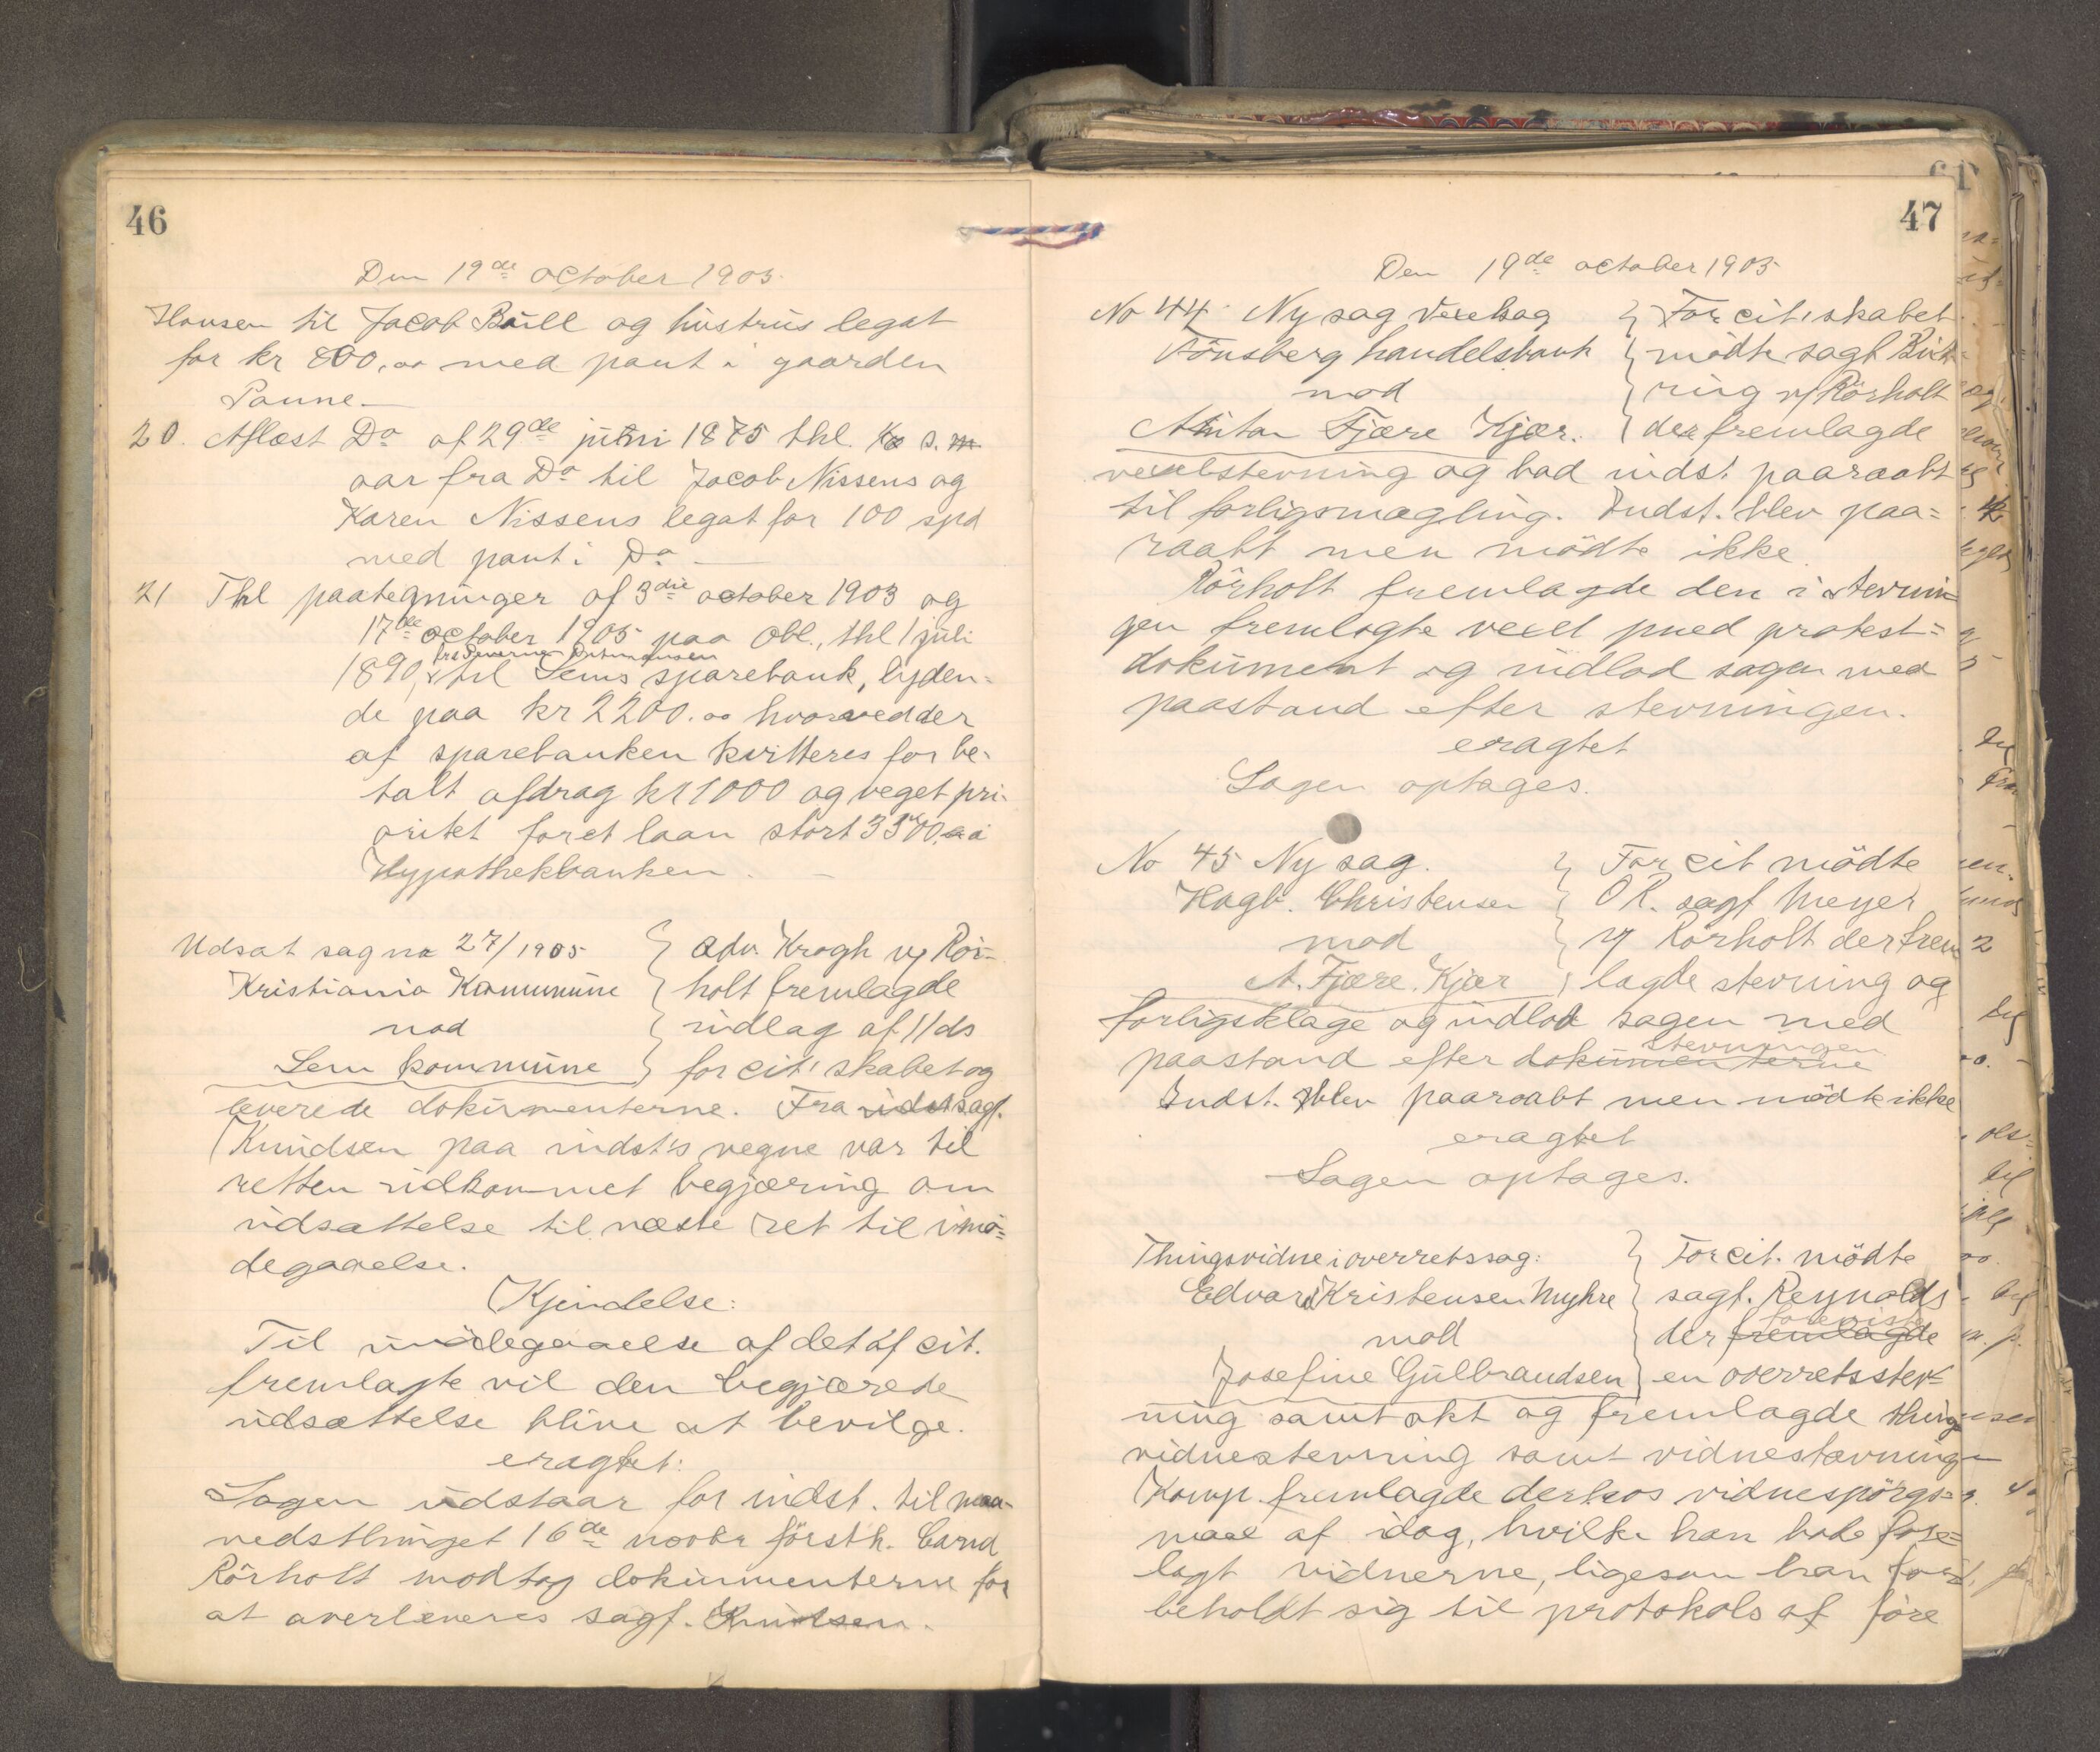 46
Den 19de october 1905.
Hansen til Jacob Bull og hustrus legat
for kr 800,00 med pant i gaarden
Paune.—
20. Aflæst Do af 29de juni 1875 thl. s.
aar fra Do til Jacob Nissens og
Karen Nissens legat for 100 spd
med pant i Do —
21 Thl paategninger af 3die october 1903 og
17de october 1905 paa Obl., thl 1 juli
1890, til Sems sparebank, lyden-
de paa kr 2200.00 hvorved der
af sparebanken kvitteres for be-
talt afdrag kr 1000 og veget pri-
oritet for et laan stort 3500 i
Hypothekbanken. —
Udsat sag no 27/1905 } Adv. Krogh v/ Rör-
Kristiania Kommune } holt fremlagde
mod } indlag af 11/ds
Sem kommune } for cit'skabet og
leverede dokumenterne. Fra sagf.
Knudsen paa indst's vegne var til
retten indkommet begjæring om
udsættelse til næste ret til imö-
degaaelse.
Kjendelse:
Til imödegaaelse af det af cit.
fremlagte vil den begjærede
udsættelse blive at bevilge.
eragtet:
Sagen udstaar for indst. til maa-
nedsthinget 16de novbr förstk. Cand
Rörholt modtog dokumenterne for
at overleveres sagf. Knudsen.
47
Den 19de october 1905
No 44. Ny sag Vexelsag } For cit'skabet
Tönsberg handelsbank } mödte sagf. Bick-
mod } ring v/ Rörholt
Anton Fjære Kjær. } der fremlagde
vexelstevning og bad indst. paaraabt
til forligsmægling. Indst. blev paa=
raabt men mödte ikke
Rörholt fremlagde den i stevnin
gen fremlagte vexel med protest=
dokument og indlod sagen med
paastand efter stevningen.
eragtet
Sagen optages.
No 45 Ny sag. } For cit mödte
Hagb. Christensen } O R. sagf Meyer
mod } v/ Rörholt der frem
A. Fjære Kjær } lagde stevning og
forligsklage og indlod sagen med
stevningen
paastand efter dokumenterne
Indst. blev paaraabt men mödte ikke
eragtet
Sagen optages.
Thingsvidne i overretssag: } For cit. mödte
Edvard Kristensen Myhre } sagf. Reynolds
foreviste
mod } der fremlagde
Josefine Gulbrandsen } en overretsstev=
ning samt akt og fremlagde things
vidnestevning samt vidnestævning
Komp. fremlagde derhos vidnespörgs=
maal af idag, hvilke han bad fore=
lagt vidnerne, ligesom han for
beholdt sig til protokols at före